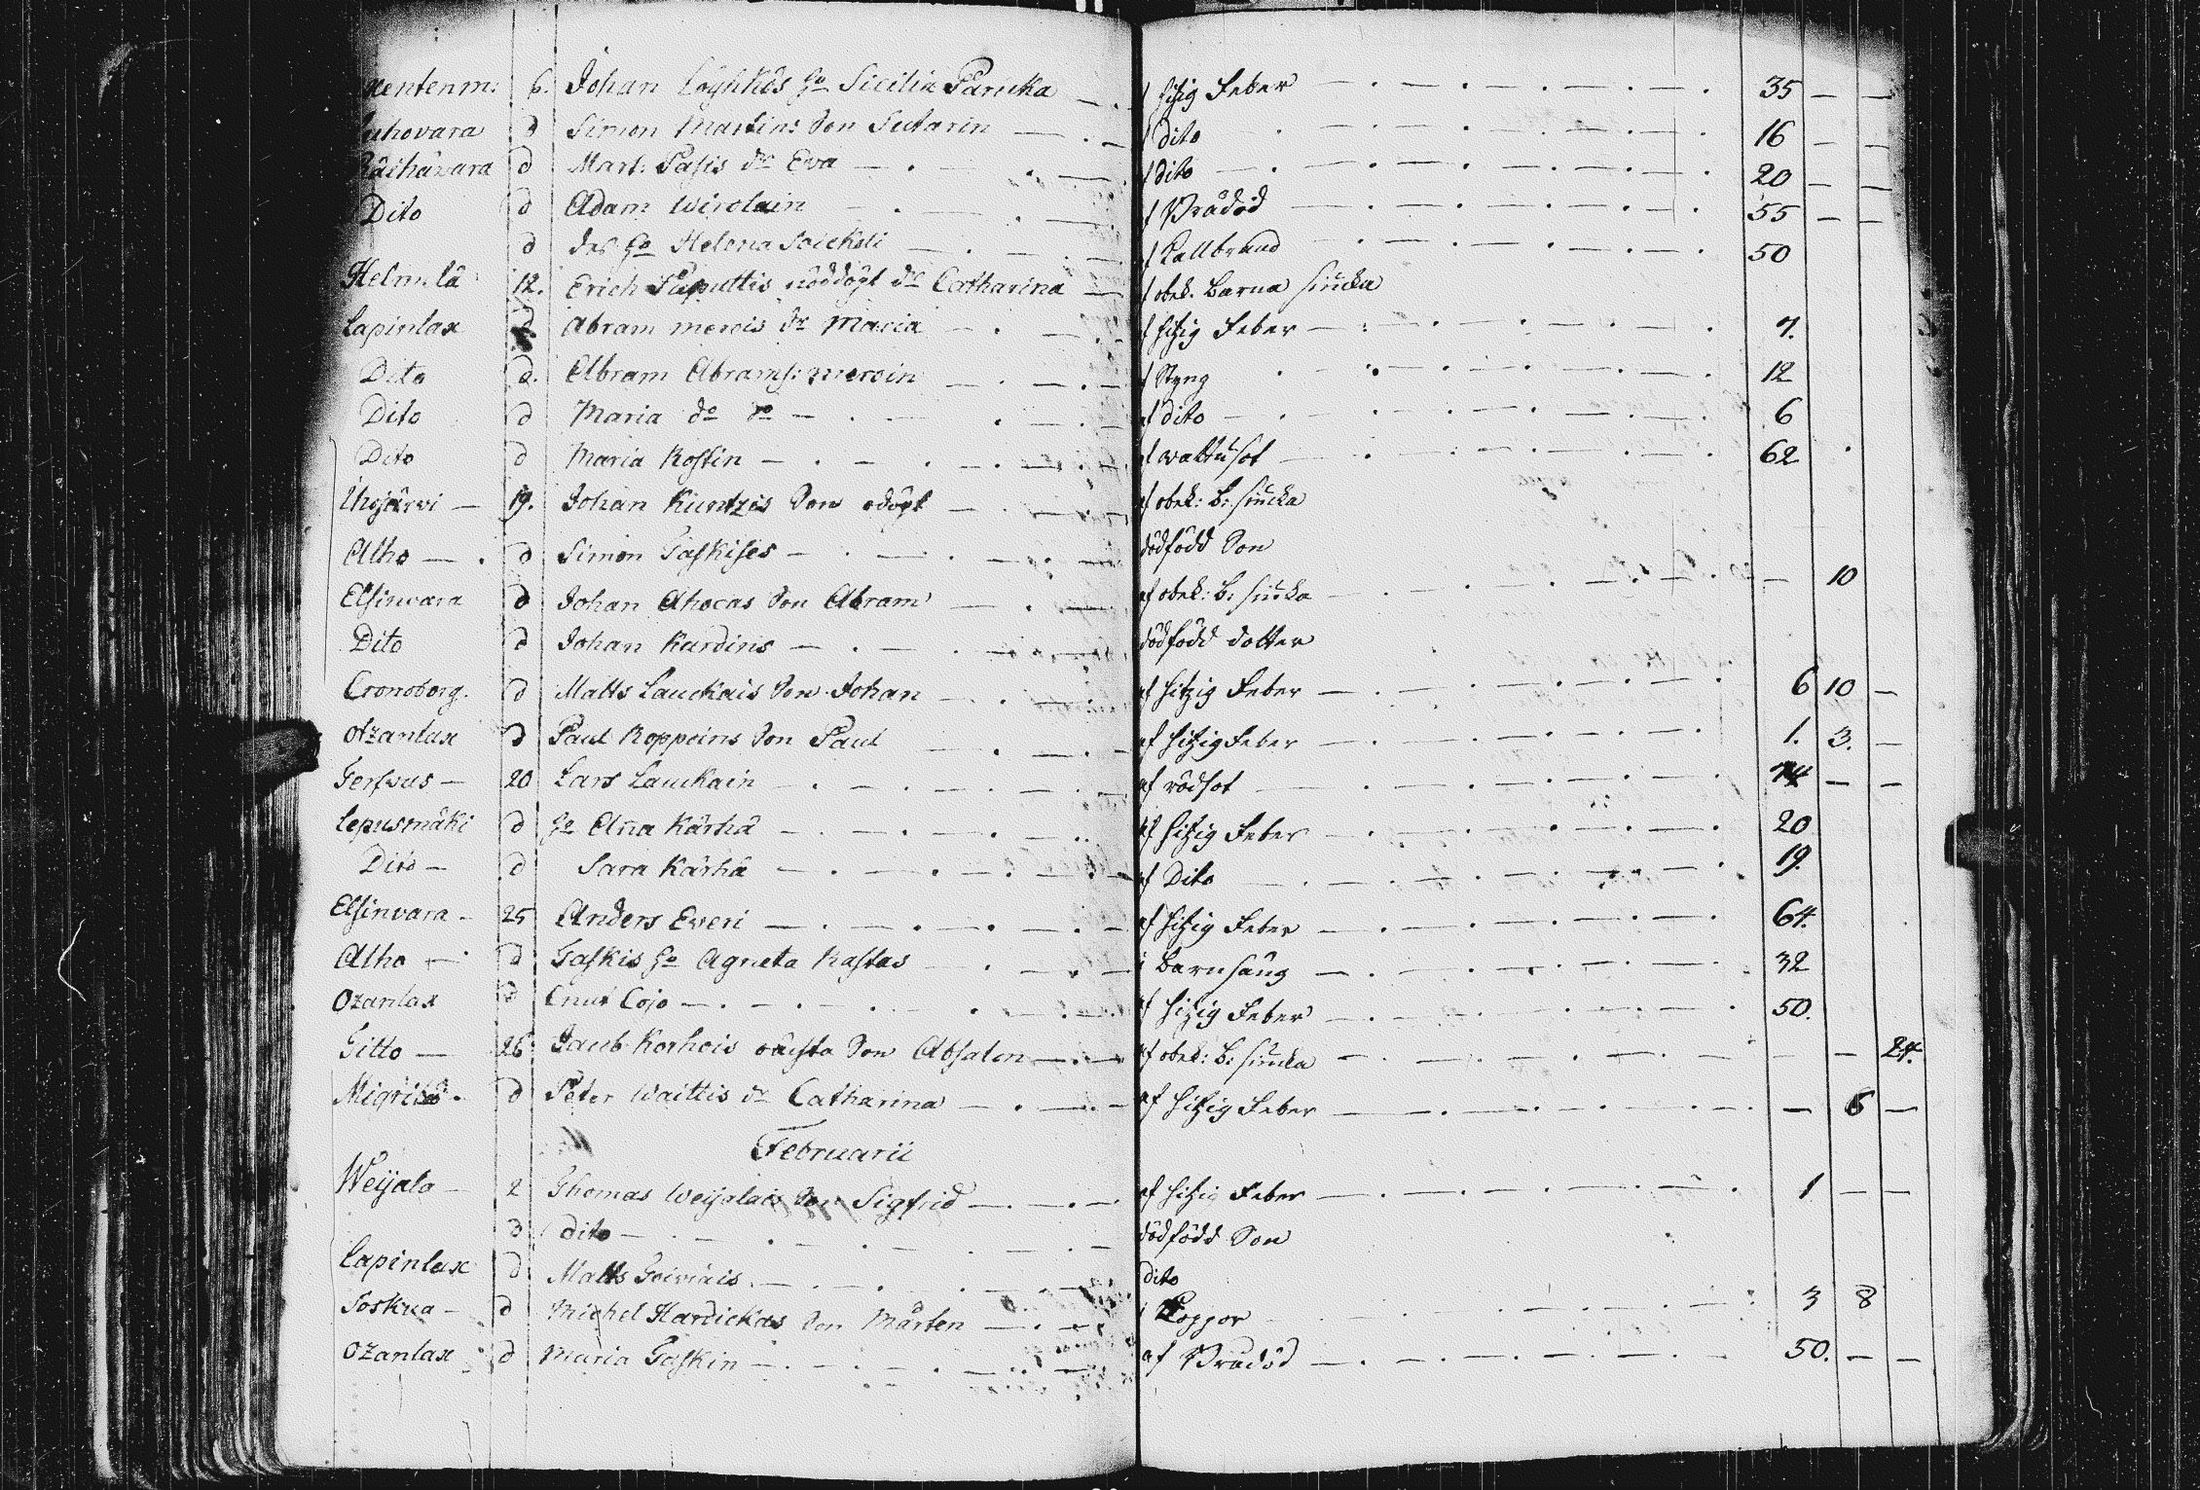 Johan Löyhkös ho Sicilia Päricka — af hitzig Feber — 35 — —
Juhovara d Simon Martins Son Sutarin — af dito — 16 — —
Räihävara d Mart: Pasis dr Eva — af dito — 20 — —
Dito d Adam Wirolain — af Brådöd — 55 — —
d des ho Helena Soickeli — af Kallbrand — 50
Helmilä 12. Erich Paputtis nöddögt dr Catharina — af obek. Barna siucka
Lapinlax d Abram merois dr Maria — af hitzig Feber — 7.
Dito d. Abram Abrams: meroin — af Styng — 12
Dito d Maria do do — af dito — 6
Dito d Maria Kostin — af wattusot — 62
Ihojärvi — 19. Johan Kuntzis Son odöpt — af obek: B: siucka
Alho — d Simon Taskises — dödfödd Son
Elsinvara d Johan Ahocas Son Abram — af obek: B: siucka — 10
Dito d Johan Kardins — dödfödd dotter
Cronoborg. d Matts Lauckais Son Johan — af hitzig Feber — 6 10 —
Otzanlax d Paul Koppoins Son Paul — af hitzig Feber — 1. 3. —
Terfwus — 20 Lars Lauckain — af rödsot — 74 — —
Lepusmäki d ho Anna Kärhä — af hitzig Feber — 20
Dito — d Sara Kärhä — af Dito — 19.
Elsinvara — 25 Anders Everi — af hitzig Feber — 64.
Alho — d Taskis ho Agneta Kastas — i Barnsäng — 32
Ozanlax d Cnut Cojo — af hitzig Feber — 50.
Sitto — 26 Jacub Korhois Son Absalon — af obek: B: siucka — — — 24.
d Peter Waittis dr Catharina — af hitzig Feber — — 6 —
Februarii
Weijala — 2 Thomas Weijalais Son Sigfrid — af hitzig Feber — 1 — —
3 dito — dödfödd Son
Lapinlax d Matts Toiviais — dito
Soskua — d Michel Hardickas Son Mårten — i Koppor — 3 8
Ozanlax d Maria Taskin — af Brådöd — 50. — —